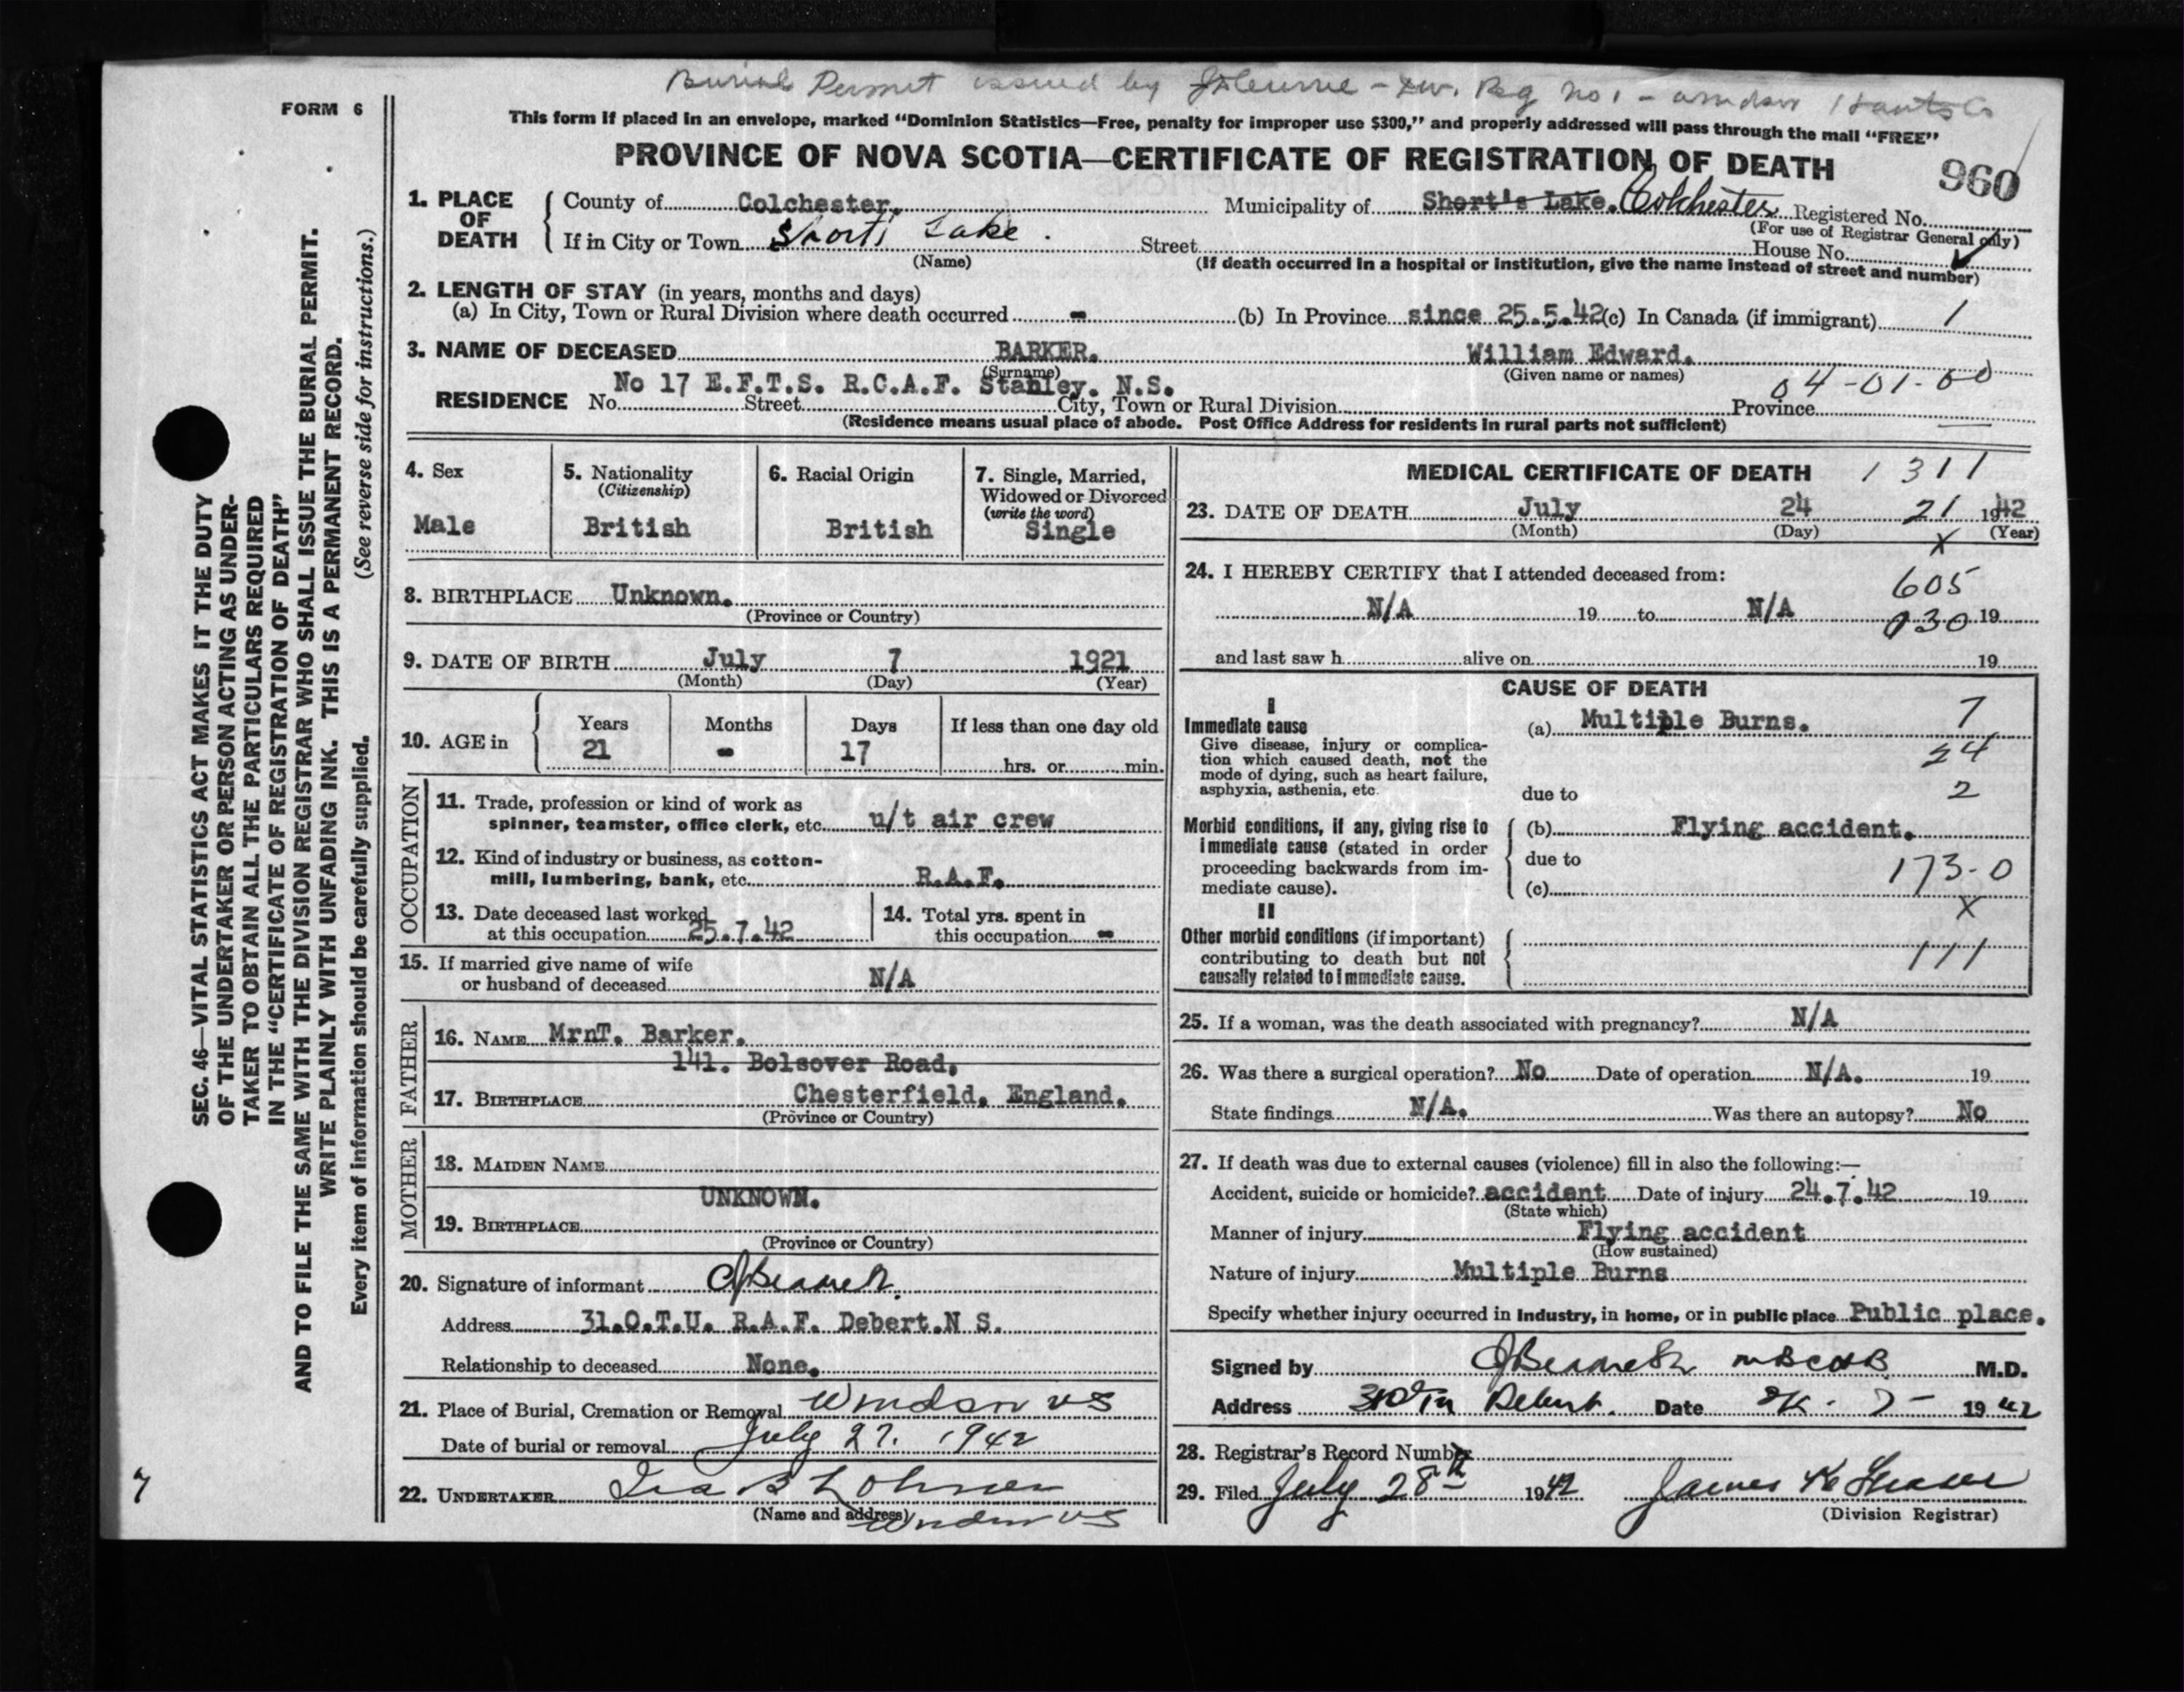 Burial Permit issued by
FORM 6
This form if placed in an envelope, marked “Dominion Statistics—Free, penalty for improper use $300,” and properly addressed will pass through the mail “FREE”
PROVINCE OF NOVA SCOTIA—CERTIFICATE OF REGISTRATION OF DEATH
960
1. PLACE OF DEATH
County of Colchester. Municipality of Short's Lake. Colchester Registered No.
(For use of Registrar General only)
If in City or Town Shorts Lake. Street House No.
(Name) (If death occurred in a hospital or institution, give the name instead of street and number)
2. LENGTH OF STAY (in years, months and days)
(a) In City, Town or Rural Division where death occurred - (b) In Province since 25.5.42 (c) In Canada (if immigrant) 1
3. NAME OF DECEASED BARKER. William Edward.
(Surname) (Given name or names)
No 17 E.F.T.S. R.C.A.F. Stanley. N.S. 04-01-00
RESIDENCE No. Street City, Town or Rural Division Province
(Residence means usual place of abode. Post Office Address for residents in rural parts not sufficient)
SEC. 46—VITAL STATISTICS ACT MAKES IT THE DUTY
OF THE UNDERTAKER OR PERSON ACTING AS UNDER-
TAKER TO OBTAIN ALL THE PARTICULARS REQUIRED
IN THE “CERTIFICATE OF REGISTRATION OF DEATH”
AND TO FILE THE SAME WITH THE DIVISION REGISTRAR WHO SHALL ISSUE THE BURIAL PERMIT.
WRITE PLAINLY WITH UNFADING INK. THIS IS A PERMANENT RECORD.
Every item of information should be carefully supplied. (See reverse side for instructions.)
4. Sex
Male
5. Nationality
(Citizenship)
British
6. Racial Origin
British
7. Single, Married,
Widowed or Divorced
(write the word)
Single
8. BIRTHPLACE Unknown.
(Province or Country)
9. DATE OF BIRTH July 7 1921
(Month) (Day) (Year)
10. AGE in
Years Months Days If less than one day old
21 - 17
hrs. or min.
OCCUPATION
11. Trade, profession or kind of work as
spinner, teamster, office clerk, etc. u/t air crew
12. Kind of industry or business, as cotton-
mill, lumbering, bank, etc. R.A.F.
13. Date deceased last worked
at this occupation 25.7.42
14. Total yrs. spent in
this occupation -
15. If married give name of wife
or husband of deceased N/A
FATHER
16. NAME MrnT. Barker.
141. Bolsover Road,
17. BIRTHPLACE Chesterfield. England.
(Province or Country)
MOTHER
18. MAIDEN NAME
UNKNOWN.
19. BIRTHPLACE
(Province or Country)
20. Signature of informant
Address 31.O.T.U. R.A.F. Debert.N S.
Relationship to deceased None.
21. Place of Burial, Cremation or Removal Windsor NS
Date of burial or removal July 27. 1942
22. UNDERTAKER Ira B Lohnes
(Name and address) Windsor NS
7
MEDICAL CERTIFICATE OF DEATH 1311
23. DATE OF DEATH July 24 21 1942
(Month) (Day) X (Year)
24. I HEREBY CERTIFY that I attended deceased from:
605
N/A 19 to N/A 19
030
and last saw h alive on 19
CAUSE OF DEATH
I
Immediate cause
Give disease, injury or complica-
tion which caused death, not the
mode of dying, such as heart failure,
asphyxia, asthenia, etc.
(a) Multiple Burns. 7
24
due to 2
Morbid conditions, if any, giving rise to
immediate cause (stated in order
proceeding backwards from im-
mediate cause).
(b) Flying accident.
due to
173-0
(c)
X
II
Other morbid conditions (if important)
contributing to death but not
causally related to immediate cause.
111
25. If a woman, was the death associated with pregnancy? N/A
26. Was there a surgical operation? No Date of operation N/A. 19
State findings N/A. Was there an autopsy? No
27. If death was due to external causes (violence) fill in also the following:—
Accident, suicide or homicide? accident Date of injury 24.7.42 19
(State which)
Manner of injury Flying accident
(How sustained)
Nature of injury Multiple Burns
Specify whether injury occurred in industry, in home, or in public place Public place.
Signed by M.D.
Address Debert. Date 7- 1942
28. Registrar's Record Number
29. Filed July 28th 1942 James
(Division Registrar)